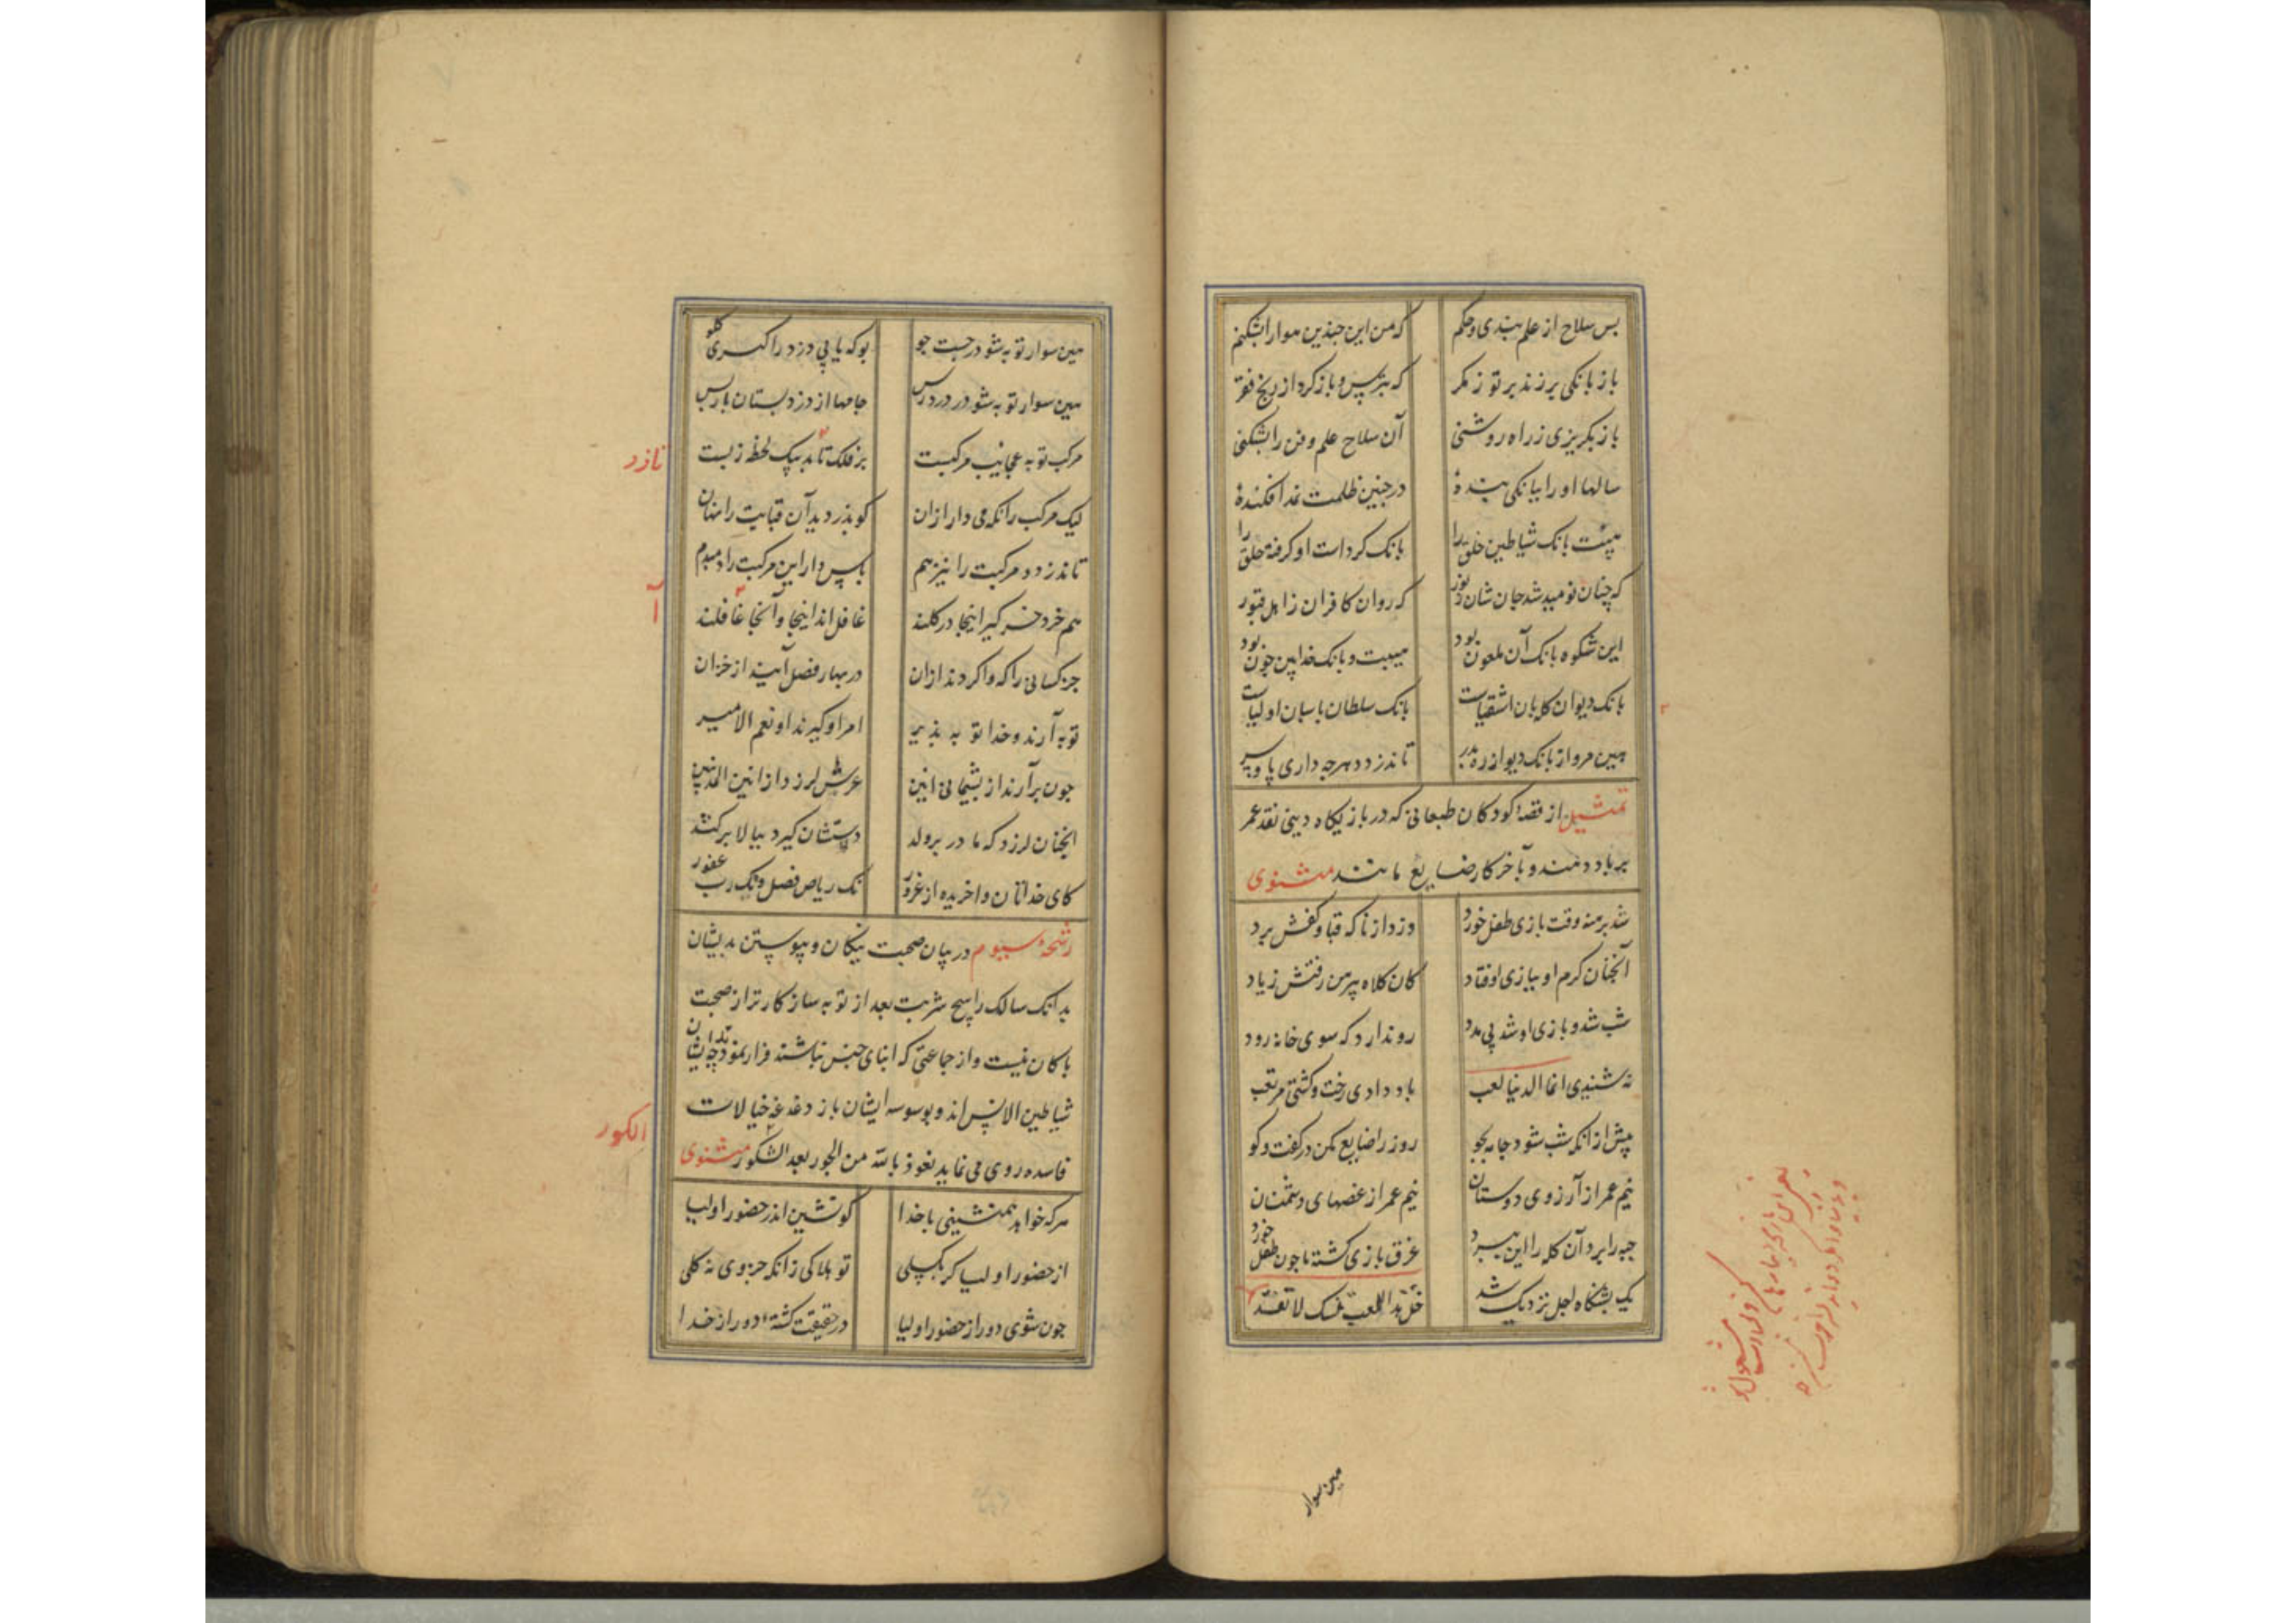 بس سلاح از علم بندی و حکم که من این جندین هوا را بشکنم
باز بانکی بر زند بر تو ز مکر که بترس و باز کرد از رنج فقر
باز بکریزی ز راه روشنی آن سلاح علم و فن را بشکنی
سالها او را ببانکی بندهٔ در جنین ظلمت نمد افکندهٔ
هیبت بانک شیاطین خلق را بانک کرداست او کرفته حلق را
که چنان نومید شد جان شان ز نور که روان کافران ز اهل قبور
این شکوه بانک آن ملعون بود هیبت و بانک خدایین چون بود
بانک دیوان کله بان اشقیاست بانک سلطان پاسبان اولیاست
هین مرو از بانک دیو از ره بدر تا ندزدد هرجه داری پا و سر
تمثیل از قصهٔ کودکان طبعانی که در بازیکاه دینی نقد عمر
بر باد دهند و بآخر کار ضایع مانند مثنوی
شد برهنه وقت بازی طفل خورد دزد از ناکه قبا و کفش برد
آنجنان کرم او ببازی اوفتاد کان کلاه پیرهن رفتش زیاد
شب شد و بازی او شد بی مدد رو ندارد که سوی خانه رود
نه شنیدی انما الدنیا لعب باد دادی رخت و کشتی مرتعب
پیش از آنکه شب شود جامه بجو روز را ضایع مکن در کفت و کو
نیم عمر از آرزوی دوستان نیم عمر از غصهای دشمنان
جبه را برد آن کله را این ببرد غرق بازی کشته ما جون طفل خورد
یک شبنکاه اجل نزدیک شد خل هذا اللعب بسک لا تعد
هین سوار
هین سوار توبه شو در جست جو بو که یابی دزد را کبری کلو
هین سوار توبه شو در دزد رس جامها از دزد بستان باز پس
مرکب توبه عجایب مرکبست بر فلک تازد بیک لحظه ز پست
تازد
لیک مرکب را نکه می دار از آن کو بدزدید آن قبایت را نهان
تا ندزدد مرکبت را نیز هم پاس دار این مرکبت را دمبدم
هم خرد خر کیر اینجا در کلند غافل اند اینجا و آنجا غافلند
آ
جز کسانی را که واکردند از آن در بهار فضل آیند از خزان
توبه آرند و خدا توبه پذیر امر او کیرند او نعم الامیر
جون بر آرند از بشیمانی انین عرش لرزد از انین المذنبین
آنجنان لرزد که مادر بر ولد دستشان کیرد ببالا بر کشد
کای خداتان واخریده از غرور نک ریاض فضل و نک رب غفور
رشحهٔ سیوم در بیان صحبت نیکان و پیوستن بدیشان
بدانک سالک راسخ شربت بعد از توبه سازکارتر از صحبت
پاکان نیست و از جماعتی که ابنای جنس نباشند فرار نمودن چه ایشان
شیاطین الانس اند و بوسوسه ایشان باز دغدغهٔ خیالات
فاسده روی می نماید نعوذ بالله من الجور بعد الشکور مثنوی
الکور
هرکه خواهد همنشینی با خدا کو نشین اندر حضور اولیا
از حضور اولیا کر بکسلی تو هلاکی زانکه جزوی نه کلی
جون شوی دور از حضور اولیا در حقیقت کشتهٔ دور از خدا